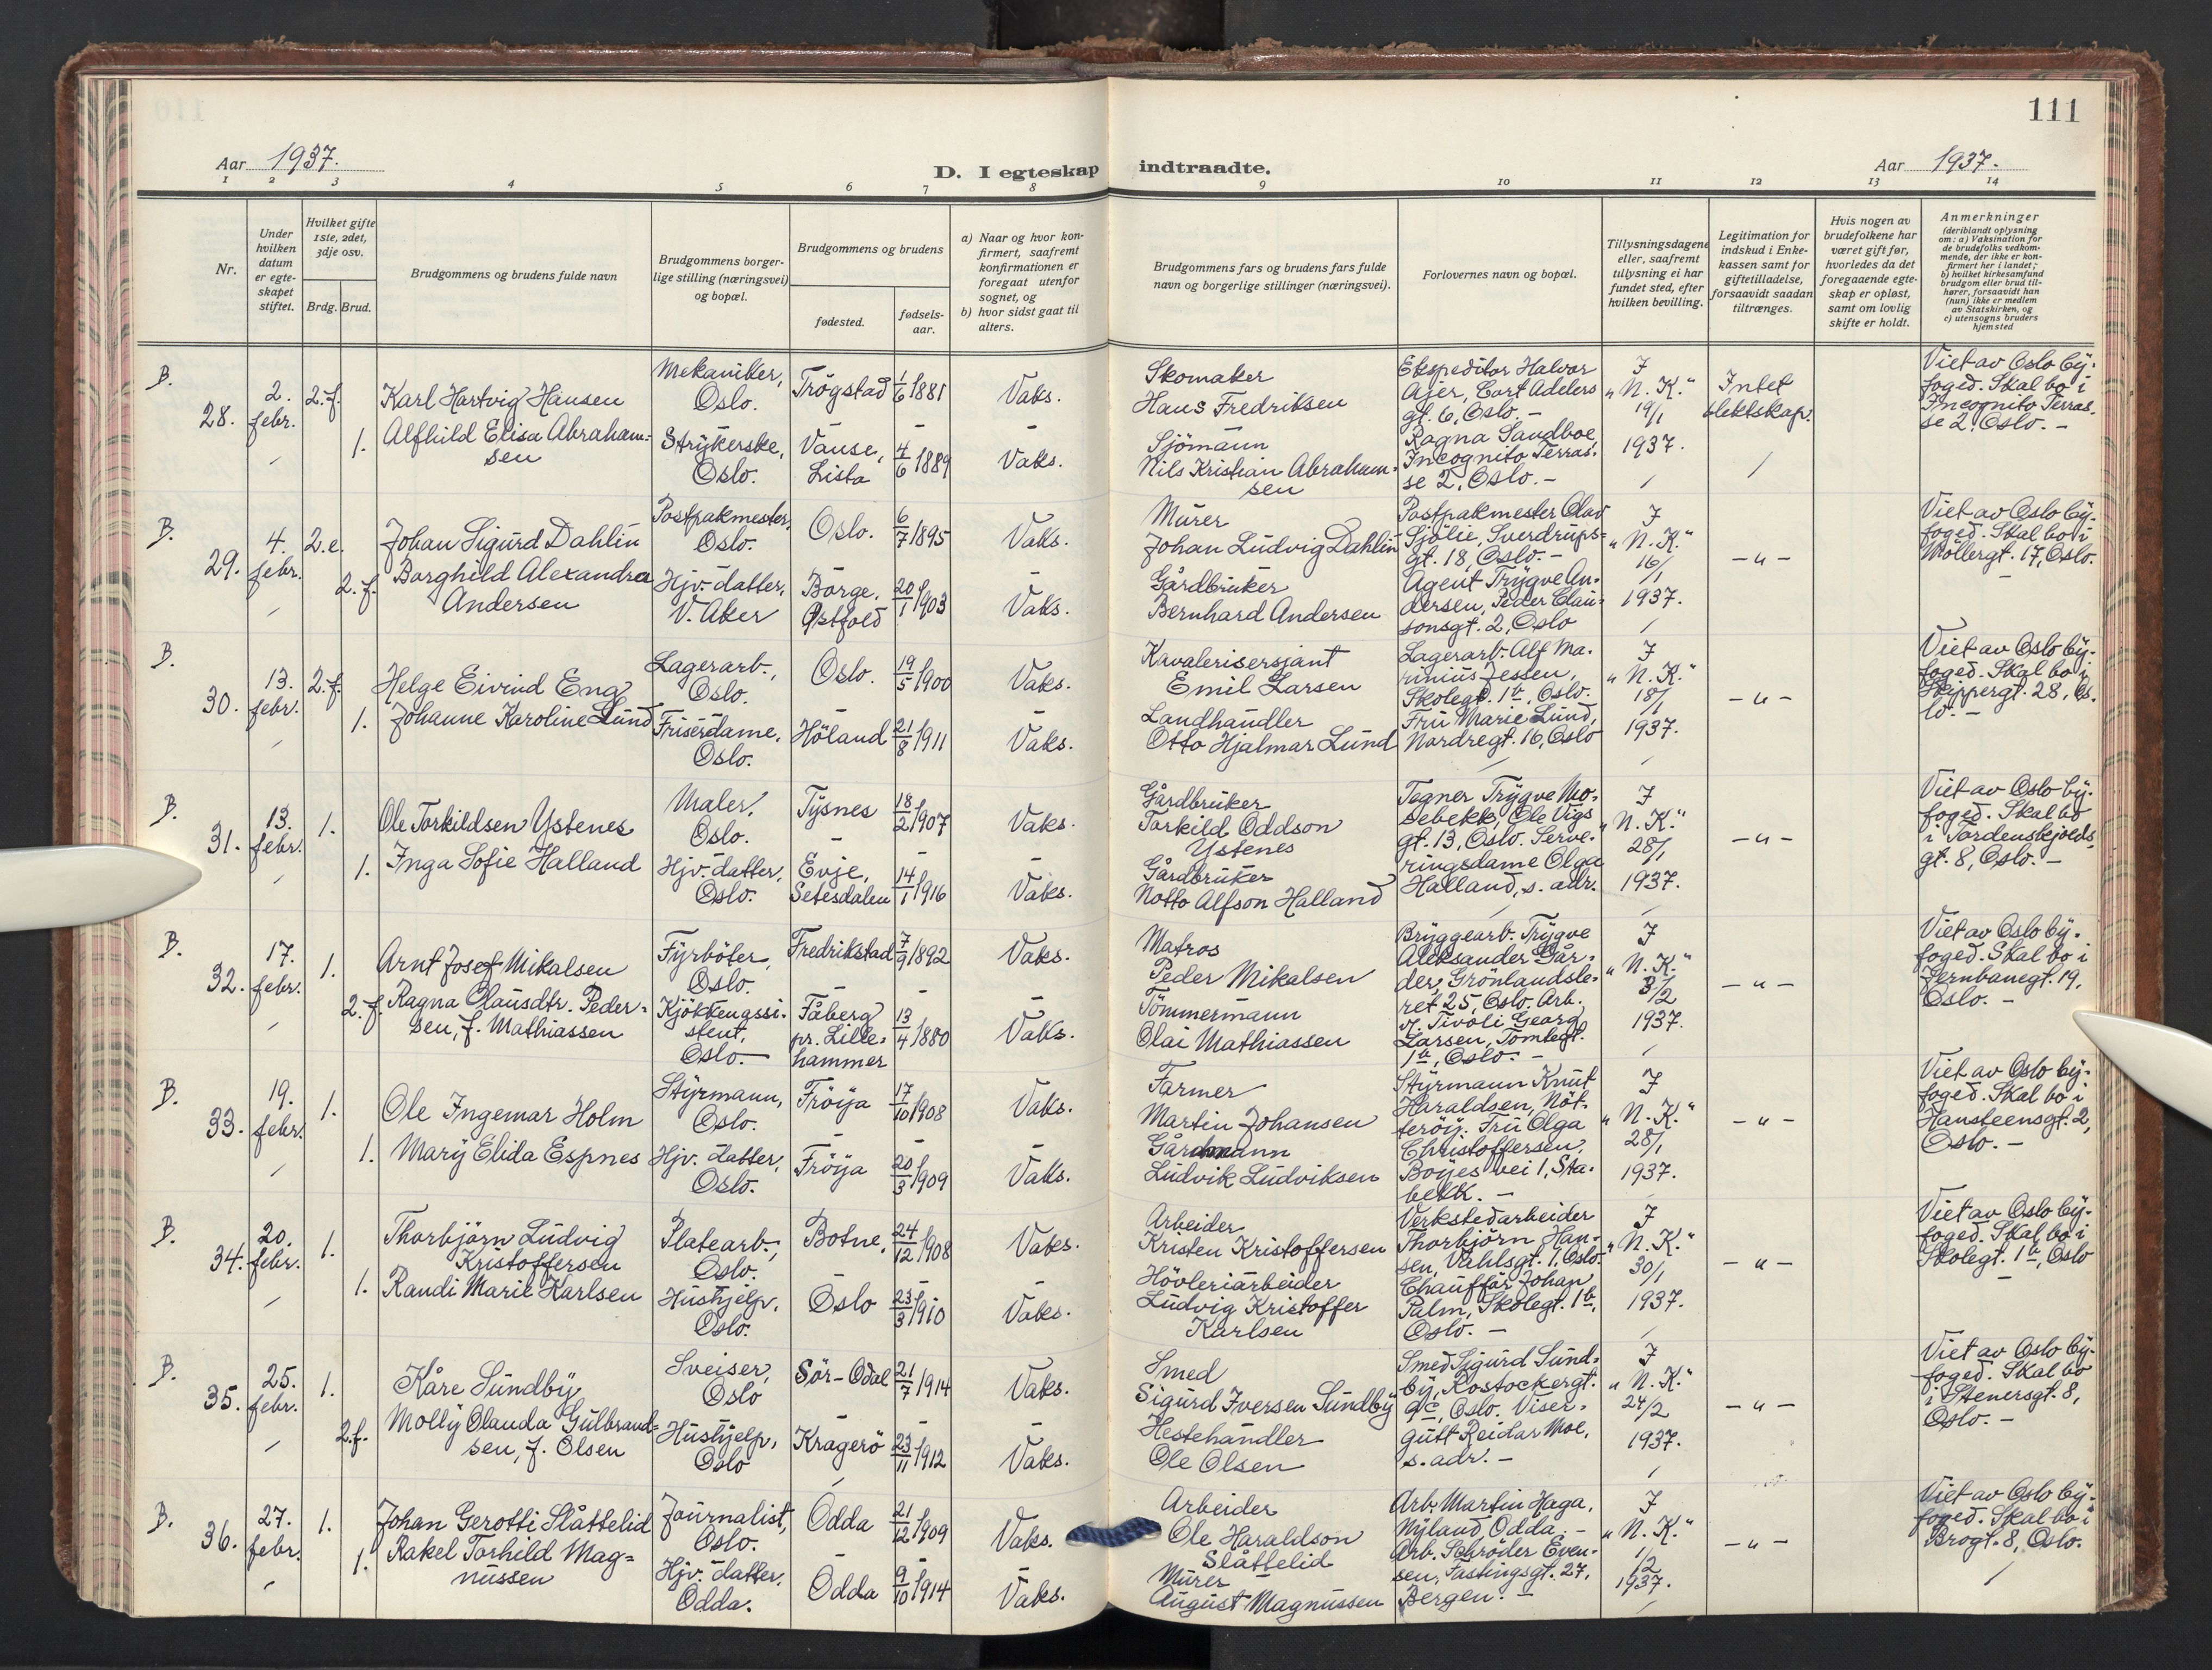 111
Aar 1937.
D. I egteskap indtraadte.
Aar 1937.
1 2 3 4 5 6 7 8 9 10 11 12 13 14
Nr.
Under hvilken datum er egteskapet stiftet.
Hvilket gifte 1ste, 2det, 3dje osv.
Brdg. Brud.
Brudgommens og brudens fulde navn
Brudgommens borgerlige stilling (næringsvei) og bopæl.
Brudgommens og brudens
fødested.
fødselsaar.
a) Naar og hvor konfirmert, saafremt konfirmationen er foregaat utenfor sognet, og
b) hvor sidst gaat til alters.
Brudgommens fars og brudens fars fulde navn og borgerlige stillinger (næringsvei).
Forlovernes navn og bopæl.
Tillysningsdagene eller, saafremt tillysning ei har fundet sted, efter hvilken bevilling.
Legitimation for indskud i Enkekassen samt for giftetilladelse, forsaavidt saadan tiltrænges.
Hvis nogen av brudefolkene har været gift før, hvorledes da det foregaaende egteskap er opløst, samt om lovlig skifte er holdt.
Anmerkninger (deriblandt oplysning om: a) Vaksination for de brudefolks vedkommende, der ikke er konfirmert her i landet; b) hvilket kirkesamfund brudgom eller brud tilhører, forsaavidt han (hun) ikke er medlem av Statskirken, og c) utensogns bruders hjemsted
B. 28. 2. febr. 2.f. Karl Hartvig Hansen Mekaniker, Oslo. Trögstad 1/6 1881 Vaks. Skomaker Hans Fredriksen Ekspeditör Halvor Ajer, Cort Adelers gt. 6, Oslo. - I "N. K." 19/1 1937. Intet slektskap. Viet av Oslo byfoged. Skal bo i Incognito Terrasse 2, Oslo. -
1. Alfhild Elisa Abrahamsen Strykerske, Oslo. Vanse, Lista 4/6 1889 Vaks. Sjömann Nils Kristian Abrahamsen Ragna Sandboe, Incognito Terrasse 2, Oslo. -
B. 29. 4. febr. 2.e. Johan Sigurd Dahlin Postpakmester, Oslo. Oslo. 6/7 1895 Vaks. Murer Johan Ludvig Dahlin Postpakmester Olav Sjölie, Sverdrupsgt. 18, Oslo. - I "N. K." 16/1 1937. -"- Viet av Oslo byfoged. Skal bo i Møllergt. 17, Oslo. -
2.f. Borghild Alexandra Andersen Hjv. datter, V. Aker Borge, Østfold 20/1 1903 Vaks. Gårdbruker Bernhard Andersen Agent Trygve Andersen, Peder Claussonsgt. 2, Oslo
B. 30. 13. febr. 2.f. Helge Eivind Eng Lagerarb., Oslo. Oslo. 19/5 1900 Vaks. Kavalerisersjant Emil Larsen Lagerarb. Alf Marinius Jessen, Skolegt. 1b, Oslo. I "N. K." 18/1 1937. -"- Viet av Oslo byfoged. Skal bo i Skippergt. 28, Oslo. -
1. Johanne Karoline Lund Friserdame, Oslo. Höland 21/8 1911 Vaks. Landhandler Otto Hjalmar Lund Fru Marie Lund, Nordregt. 16, Oslo
B. 31. 13. febr. 1. Ole Torkildsen Ystenes Maler, Oslo. Tysnes 18/2 1907 Vaks. Gårdbruker Torkild Oddson Ystenes Tegner Trygve Mosebekk, Ole Vigs gt. 13, Oslo. I "N. K." 28/1 1937. -"- Viet av Oslo byfoged. Skal bo i Tordenskjoldsgt. 8, Oslo. -
1. Inga Sofie Halland Hjv. datter, Oslo. Evje, Setesdalen 14/1 1916 Vaks. Gårdbruker Notto Alfson Halland Serveringsdame Olga Halland, s. adr.
B. 32. 17. febr. 1. Arnt Josef Mikalsen Fyrböter, Oslo. Fredrikstad 7/9 1892 Vaks. Matros Peder Mikalsen Bryggearb. Trygve Aleksander Gårder, Grönlandsleret 25, Oslo. I "N. K." 3/2 1937. -"- Viet av Oslo byfoged. Skal bo i Jernbanegt. 19, Oslo. -
2.f. Ragna Olausdtr. Pedersen, f. Mathiassen Kjökkenassistent, Oslo. - Fåberg pr. Lillehammer 13/4 1880 Vaks. Tömmermann Olai Mathiassen Arb. v. Tivoli Georg Larsen, Tomtegt. 1b, Oslo. -
B. 33. 19. febr. 1. Ole Ingemar Holm Styrmann, Oslo. Fröya 17/10 1908 Vaks. Farmer Martin Johansen Styrmann Knut Haraldsen, Nötteröy. I "N. K." 28/1 1937. -"- Viet av Oslo byfoged. Skal bo i Hansteensgt. 2, Oslo. -
1. Mary Elida Espnes Hjv. datter, Oslo. Fröya 20/3 1909 Vaks. Gårdmann Ludvik Ludviksen Fru Olga Christoffersen, Boyes vei 1, Stabekk. -
B. 34. 20. febr. 1. Thorbjörn Ludvig Kristoffersen Platearb., Oslo. Botne, 24/12 1908 Vaks. Arbeider Kristen Kristoffersen Verkstedarbeider Thorbjörn Hansen, Vahlsgt. 1, Oslo. I "N. K." 30/1 1937. -"- Viet av Oslo byfoged. Skal bo i Skolegt. 1b, Oslo -
1. Randi Marie Karlsen Hushjelp, Oslo. Oslo 23/3 1910 Vaks. Hövleriarbeider Ludvig Kristoffer Karlsen Chaufför Johan Palm, Skolegt. 1b, Oslo. -
B. 35. 25. febr. 1. Kåre Sundby Sveiser, Oslo Sör-Odal 21/7 1914 Vaks. Smed Sigurd Iversen Sundby Smed Sigurd Sundby, Rostockergt. 9c, Oslo. I "N. K." 24/2 1937. -"- Viet av Oslo byfoged. Skal bo i Stenersgt. 8, Oslo. -
2.f. Molly Olanda Gulbrandsen, f. Olsen Hushjelp, Oslo Kragerö 23/11 1912 Vaks. Hestehandler Ole Olsen Visergutt Reidar Moe, s. adr. -
B. 36. 27. febr. 1. Johan Gerotti Slåttelid Journalist, Oslo. Odda 21/12 1909 Vaks. Arbeider Ole Haraldson Slåttelid Arb. Martin Haga, Nyland, Odda. - I "N. K." 1/2 1937. -"- Viet av Oslo byfoged. Skal bo i Brogt. 8, Oslo.
1. Rakel Torhild Magnussen Hjv. datter, Odda. Odda 9/10 1914 Vaks. Murer August Magnussen Arb. Schröder Evensen, Fastingsgt. 27, Bergen. -